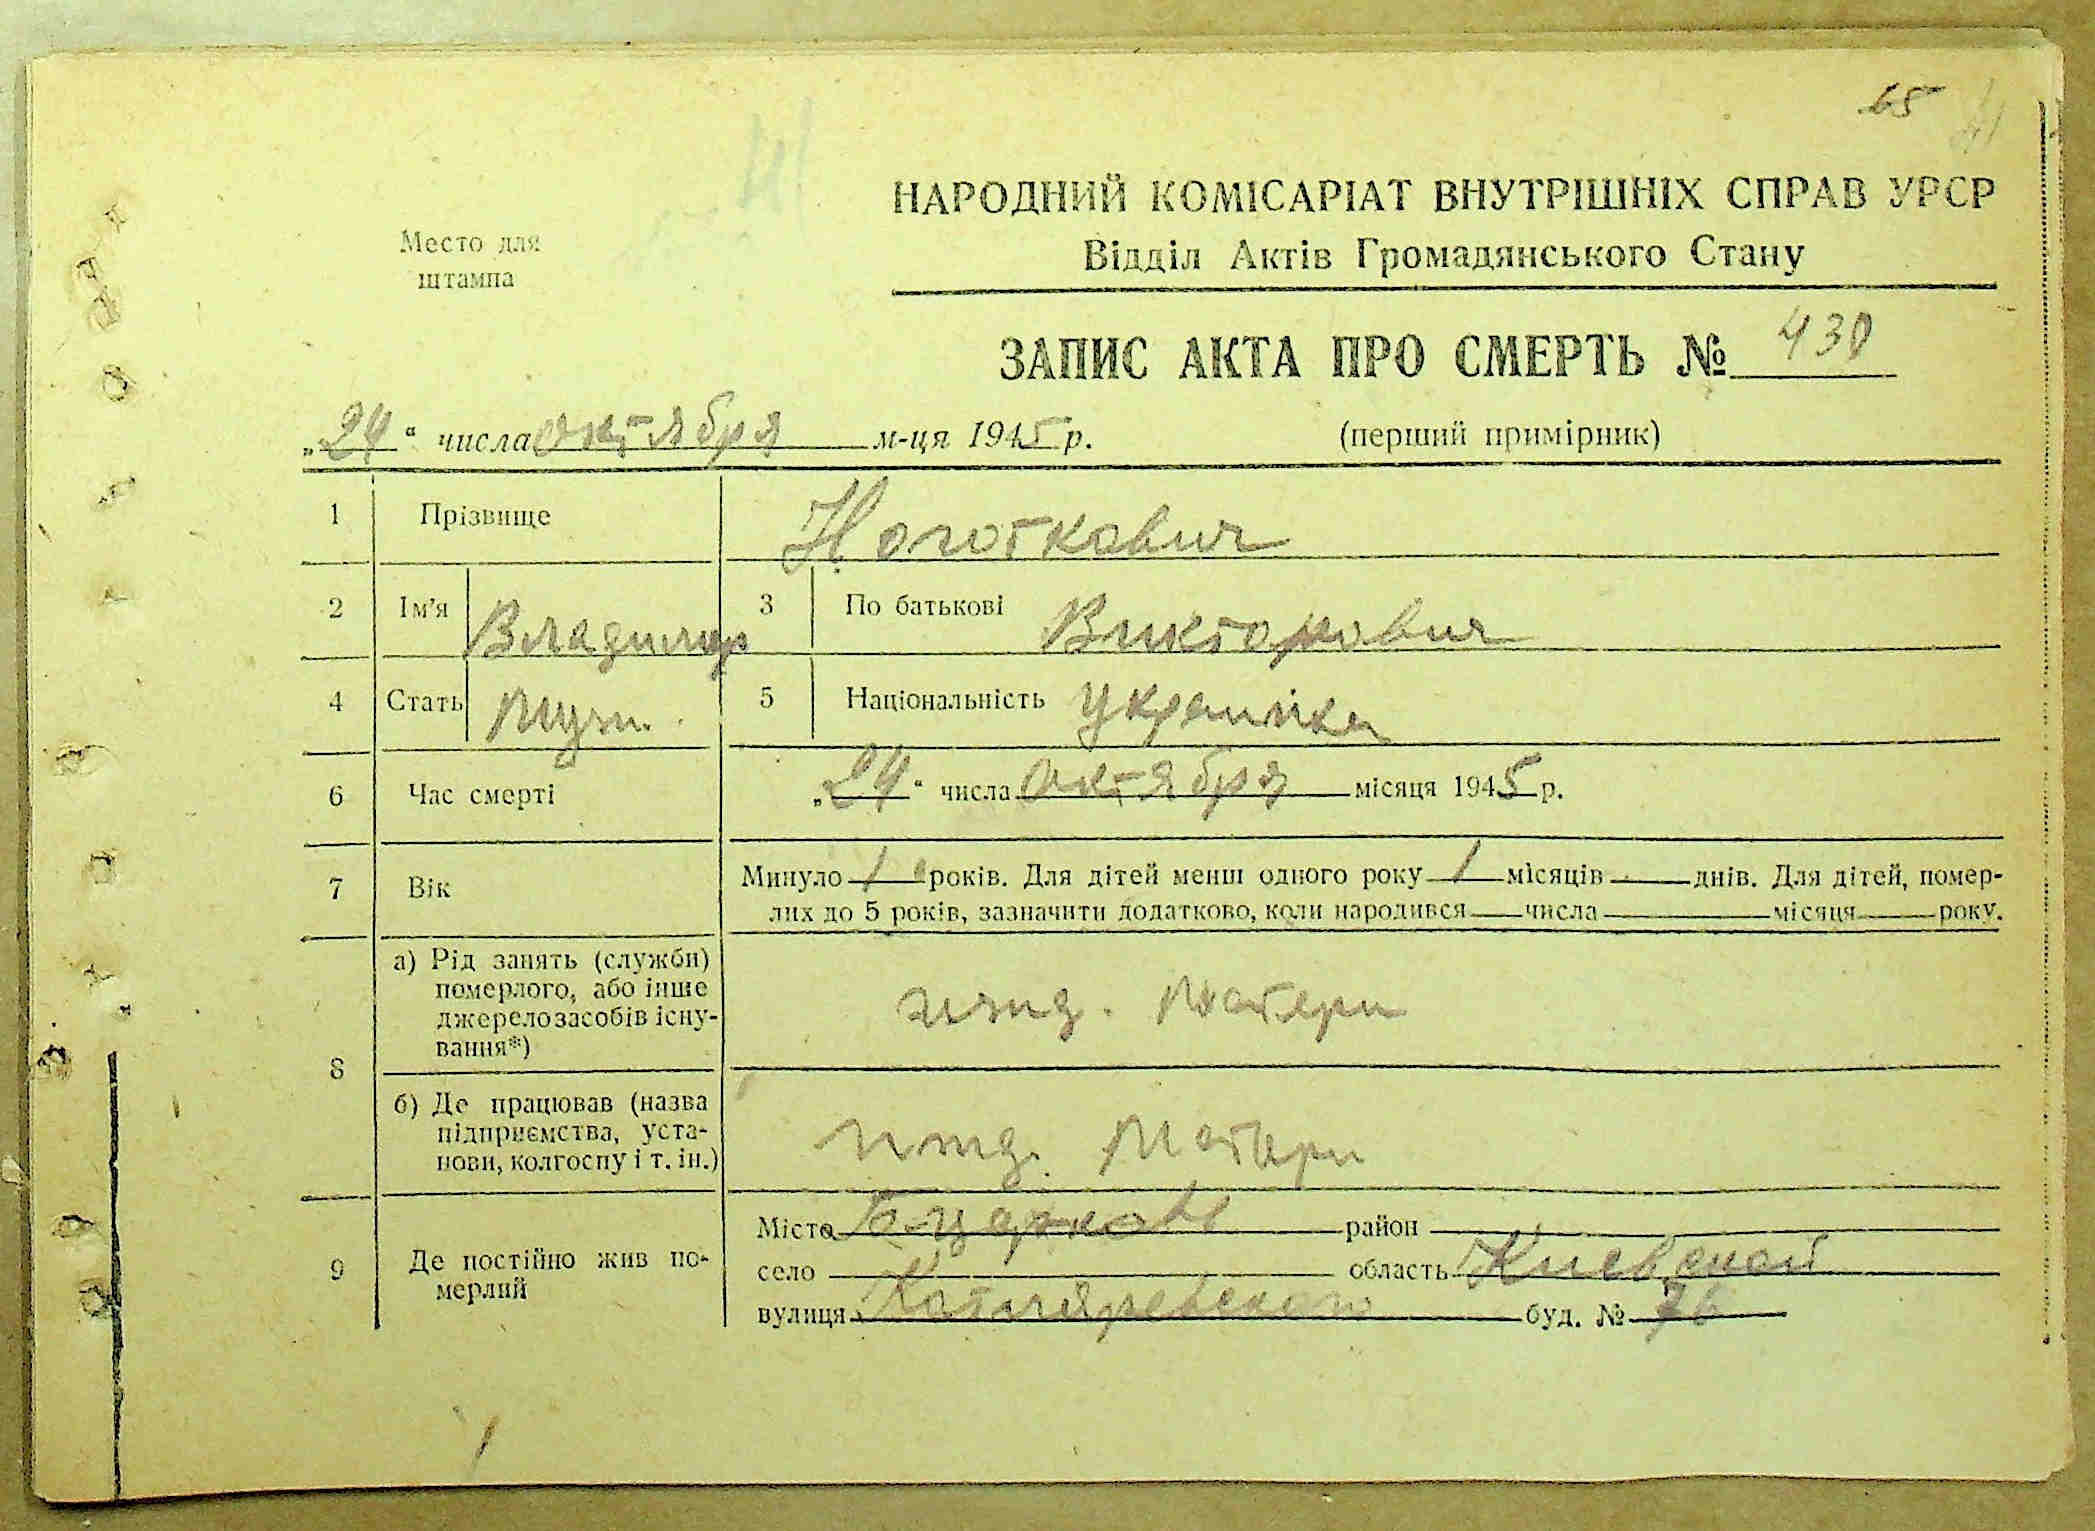 65
НАРОДНИЙ КОМІСАРІАТ ВНУТРІШНІХ СПРАВ УРСР
Место для штампа
Відділ Актів Громадянського Стану
ЗАПИС АКТА ПРО СМЕРТЬ № 430
„24“ числа октября м-ця 1945 р. (перший примірник)
1 Прізвище Ноготкович
2 Ім'я Владимир 3 По батькові Викторович
4 Стать муж. 5 Національність
6 Час смерті „24“ числа октября місяця 1945 р.
7 Вік Минуло 1 років. Для дітей менш одного року 1 місяців днів. Для дітей, помер-
лих до 5 років, зазначити додатково, коли народився числа місяця року.
8 а) Рід занять (служби)
померлого, або інше
джерело засобів існу-
вання*) ижд. матери
б) Де працював (назва
підприємства, уста-
нови, колгоспу і т. ін.) ижд. матери
9 Де постійно жив по-
мерлий
Місто Б-церковь район
село область Киевской
вулиця Котляревского буд. № 76